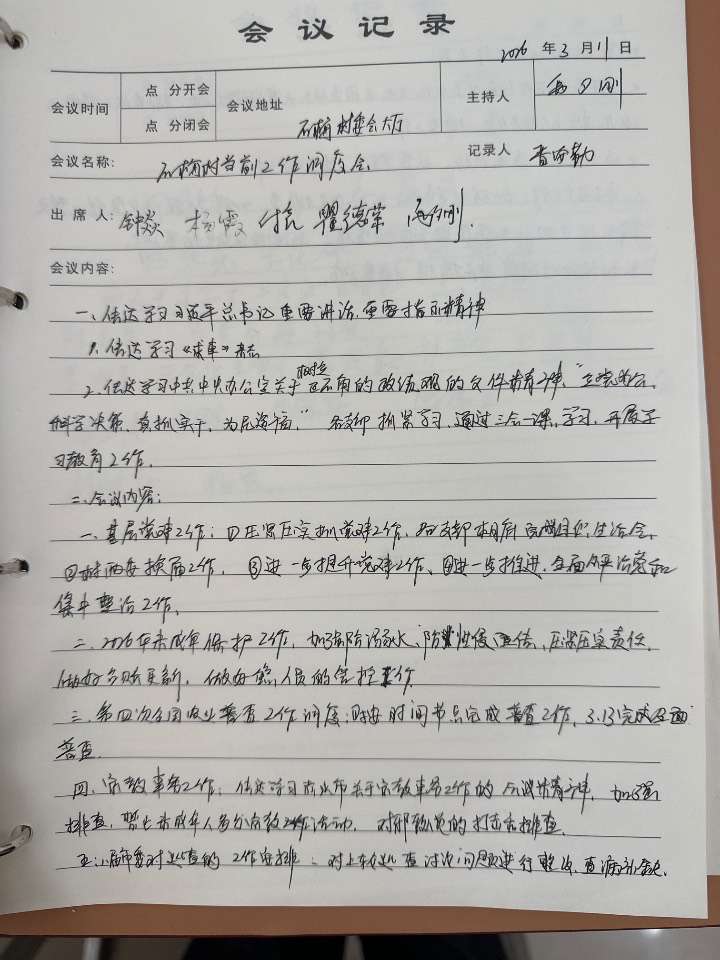 会议记录
2026 年 3 月 11 日
会议时间 点 分开会 会议地址 石桶村委会大厅 主持人 刚
点 分闭会
会议名称: 石桶村当前工作调度会 记录人
出席人: 钟焱 杨霞 瞿德荣 刚.
会议内容:
一、传达学习习近平总书记重要讲话、重要指示精神
1. 传达学习《求是》杂志
2. 传达学习中共中央办公室关于树立正确的政绩观的文件精神、"立党为公、
科学决策、真抓实干、为民造福。" 各支部抓紧学习、通过三会一课、学习、开展学
习教育工作.
二、会议内容:
一、基层党建工作: ①压紧压实抓党建工作, 各支部本月后组织生活会,
② 两委换届工作, ③进一步提升党建工作、④进一步推进、全面从严治党和
集中整治工作.
二、2026年未成年保护工作, 加强防溺水、防性侵、压紧压实责任.
做好台账更新, 做好 人员的管控工作
三、第四次全国农业普查工作调度: 时间节点完成普查工作、3.13完成全面
普查.
四、宗教事务工作: 传达学习 关于宗教事务工作的会议精神, 加强
排查, 禁止未成年人参加宗教活动, 对邪教的打击和排查.
五、对巡查的工作安排: 对上轮巡查讨论问题进行整改、查漏补缺.